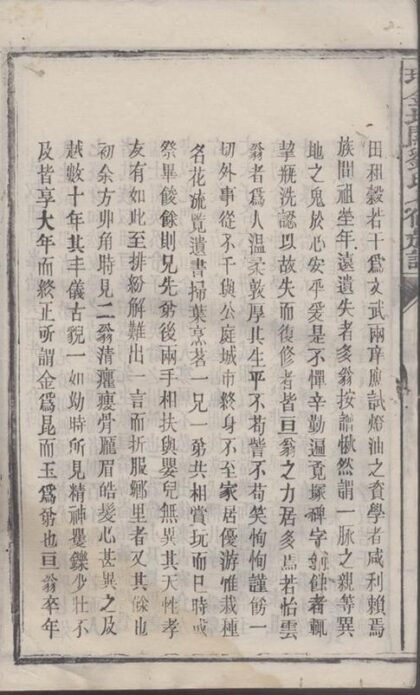 田租穀若干爲文武兩庠應試燈油之資學者咸利賴焉
族間祖塋年遠遺失者多翁按譜愀然謂一脈之親等異
地之鬼於心安乎爰是不憚辛勤遍覓塚碑字剝蝕者輒
挈瓶洗認以故失而復修者皆亘翁之力居多焉若怡雲
翁者爲人溫柔敦厚其生平不苟訾不苟笑恂恂謹飭一
切外事從不干與公庭城市終身不至家居優游惟栽種
名花流覽遺書掃葉烹茗一兄一弟共相賞玩而旦時或
祭畢餕餘則兄先弟後兩手相扶與嬰兒無異其天性孝
友有如此至排紛解難出一言而折服鄉里者又其餘也
初余方丱角時見二翁清癯瘦骨龐眉皓髮心甚異之及
越數十年其丰儀古貌一如幼時所見精神矍鑠少壯不
及皆享大年而終正所謂金爲昆而玉爲弟也亘翁卒年